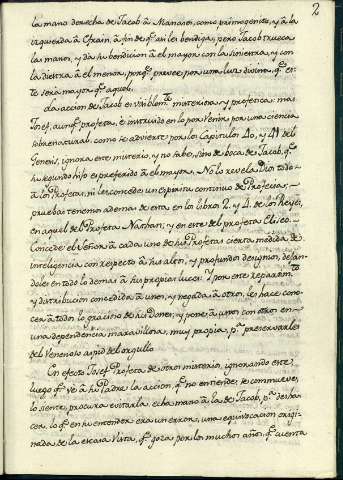 2
la mano derecha de Jacob â Manases, como primogenito, y â la
izquierda â Efrain, â fin de qe. asi les bendiga, pero Jacob trueca
las manos, y da su bendicion â el mayor con la siniestra, y con
la diestra â el menor, porqe. preveé por una luz divina, qe. es-
te sera mayor qe. aquel.
La accion de Jacob es visiblemte. misteriosa y profetica: mas
Josef, aunqe. profeta, è instruido en lo por venir por una ciencia
sobrenatural, como se advierte por los Capitulos 40, y 41 del
Genesis, ignora este misterio, y no sabe, sino de boca de Jacob, qe.
su segundo hijo es preferido â el mayor. No lo revela Dios todo
â los Profetas, ni les concede un espiritu continuo de Profecias,
pruebas tenemos ademas de esta en los libros 2. y 4. de los Reyes,
en aquel del Profeta Nathan; y en este del profeta Eliseo.
Concede el Señor â cada uno de sus Profetas cierta medida de
inteligencia con respecto â sus altos, y profundos designios, dejan-
doles en todo lo demas â sus propias luces: Y por este repartimto.
y distribucion concedida â unos, y negada â otros, les hace cono-
cer â todos lo gracioso de sus Dones; y pone â unos con otros en
una dependencia maravillosa, muy propia, pa. preservarles
del Venenoso aspid del orgullo.
En efecto Josef Profeta de otros misterios, ignorando este,
luego qe. ve â su Padre la accion, qe. no entiende, se commueve,
lo siente, procura evitarla, echa mano â la de Jacob, pa. desha-
cer, lo qe. en su entender era un error, una equivocacion origi-
nada de la escasa Vista, qe. goza por los muchos años, qe. cuenta